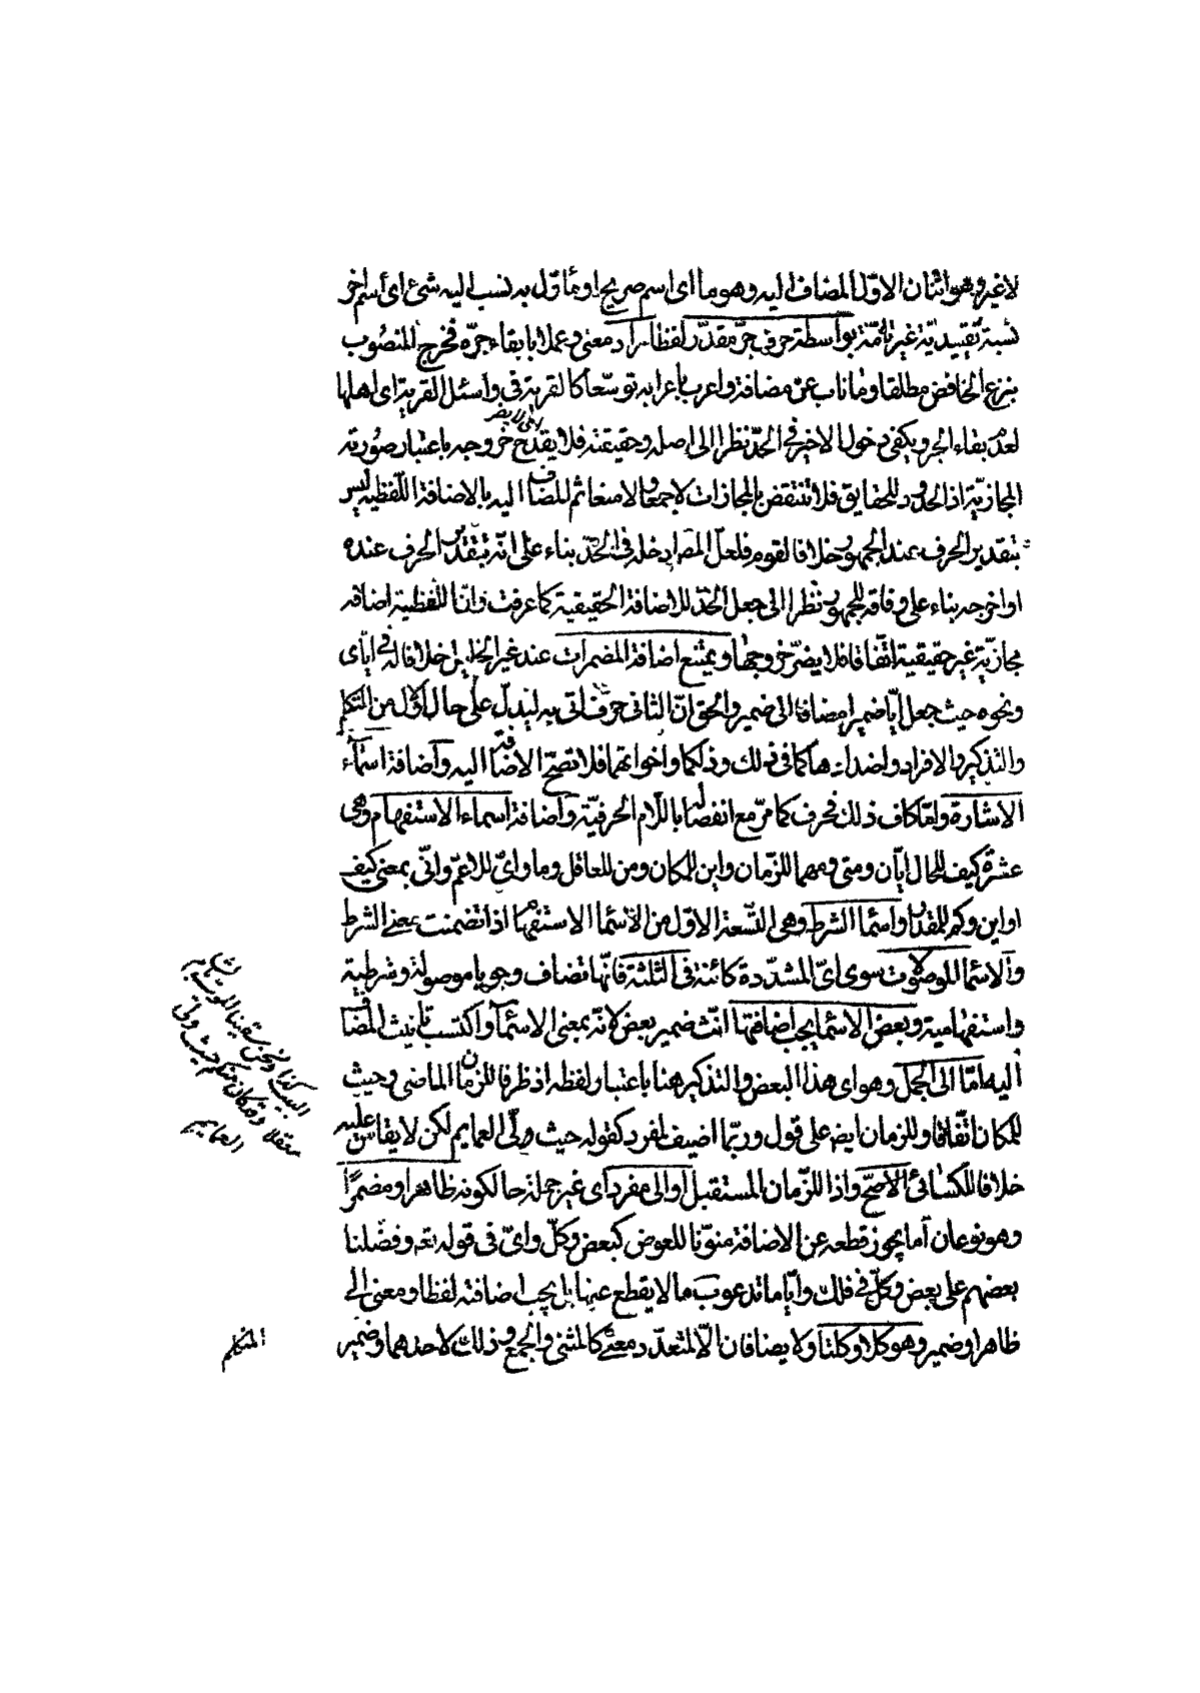 لا غير وهو اثنان الاوّل المضاف اليه وهو ما اى اسم صريح او مأوّل به نسب اليه شئ اى اسم اخر
نسبة تقييديّة غير تامّة بواسطة حرف جرّ مقدّر لفظا مراد معنى وعملا بابقاء جرّه فخرج المنصوب
بنزع الخافض مطلقا وما ناب عن مضافة واعرب باعرابه توسّعا كالقرية فى واسئل القرية اى اهلها
لعدم بقاء الجر ويكفى دخول الاخير فى الحدّ نظرا الى اصله وحقيقته فلا يقدح خروجه باعتبار صورته
المجازيّة اذ الحدود للحقايق فلا تنتقض بالمجازات لا جمعا ولا منعا ثم المضاف اليه بالاضافة اللّفظيه ليس
بتقدير الحرف عند الجمهور خلافا لقوم فلعلّ المصـ ادخله فى الحدّ بناء على انّه بتقدير الحرف عنده
او اخرجه بناء على وفاقه للجمهور نظرا الى جعل الحدّ للاضافة الحقيقية كما عرفت وانّ اللفظية اضافة
مجازيّة غير حقيقية اتّفاقا فلا يضرّ خروجها ويمتنع اضافة المضمرات عند غير الخليل خلافا له فى ايّاى
ونحوه حيث جعل ايّا ضميرا مضافا الى ضمير والحق انّ الثانى حرف اتى به ليدلّ على حال الاوّل من التكلم
والتذكير والافراد واضدادها كما فى ذلك وذلكما واخواتهما فلا تصحّ الاضافة اليه واضافة اسمآء
الاشارة وامّا كاف ذلك فحرف كما مرّ مع انفصالها باللّام الحرفيّة واضافة اسماء الاستفهام وهى
عشرة كيف للحال ايّان ومتى ومهما للزّمان واين للمكان ومن للعاقل وما واىّ للاعمّ وانّى بمعنى كيف
او اين وكم للمقدار واسما الشرط وهى التّسعة الاوّل من الاسما الاستفهام اذا تضمنت معنى الشرط
والاسما الموصولات سوى اىّ المشدّدة كائنة فى الثلثة فانّها تضاف وجوبا موصولة وشرطية
واستفهامية وبعض الاسما يجب اضافتها انّث ضمير بعض لانّه بمعنى الاسمآ واكتسب تانيث المضاف
اليه امّا الى الجمل وهو اى هذا البعض والتذكير هنا باعتبار لفظه اذ ظرفا للزمان الماضى وحيث
للمكان اتّفاقا وللزمان ايضـ على قول وربّما اضيف لمفرد كقوله حيث ولّى العمايم لكن لا يقاس عليه
خلافا للكسائى الاصحّ واذا للزّمان المستقبل او الى مفرد اى غير جملة حالكونه ظاهرا ومضمرًا
وهو نوعان اما يجوز قطعه عن الاضافة منوّنا للعوض كبعض وكلّ واىّ فى قوله تعـ وفضّلنا
بعضهم على بعض وكلّ فى فلك وايّا ما تدعو وبـ ما لا يقطع عنها بل يجب اضافته لفظا ومعنى الى
ظاهر او ضمير وهو كلا وكلتا ولا يضافان الّا لمتعدّد معنى كالمثنى والجمع وذلك لاحدهما وضمير
المتكلم